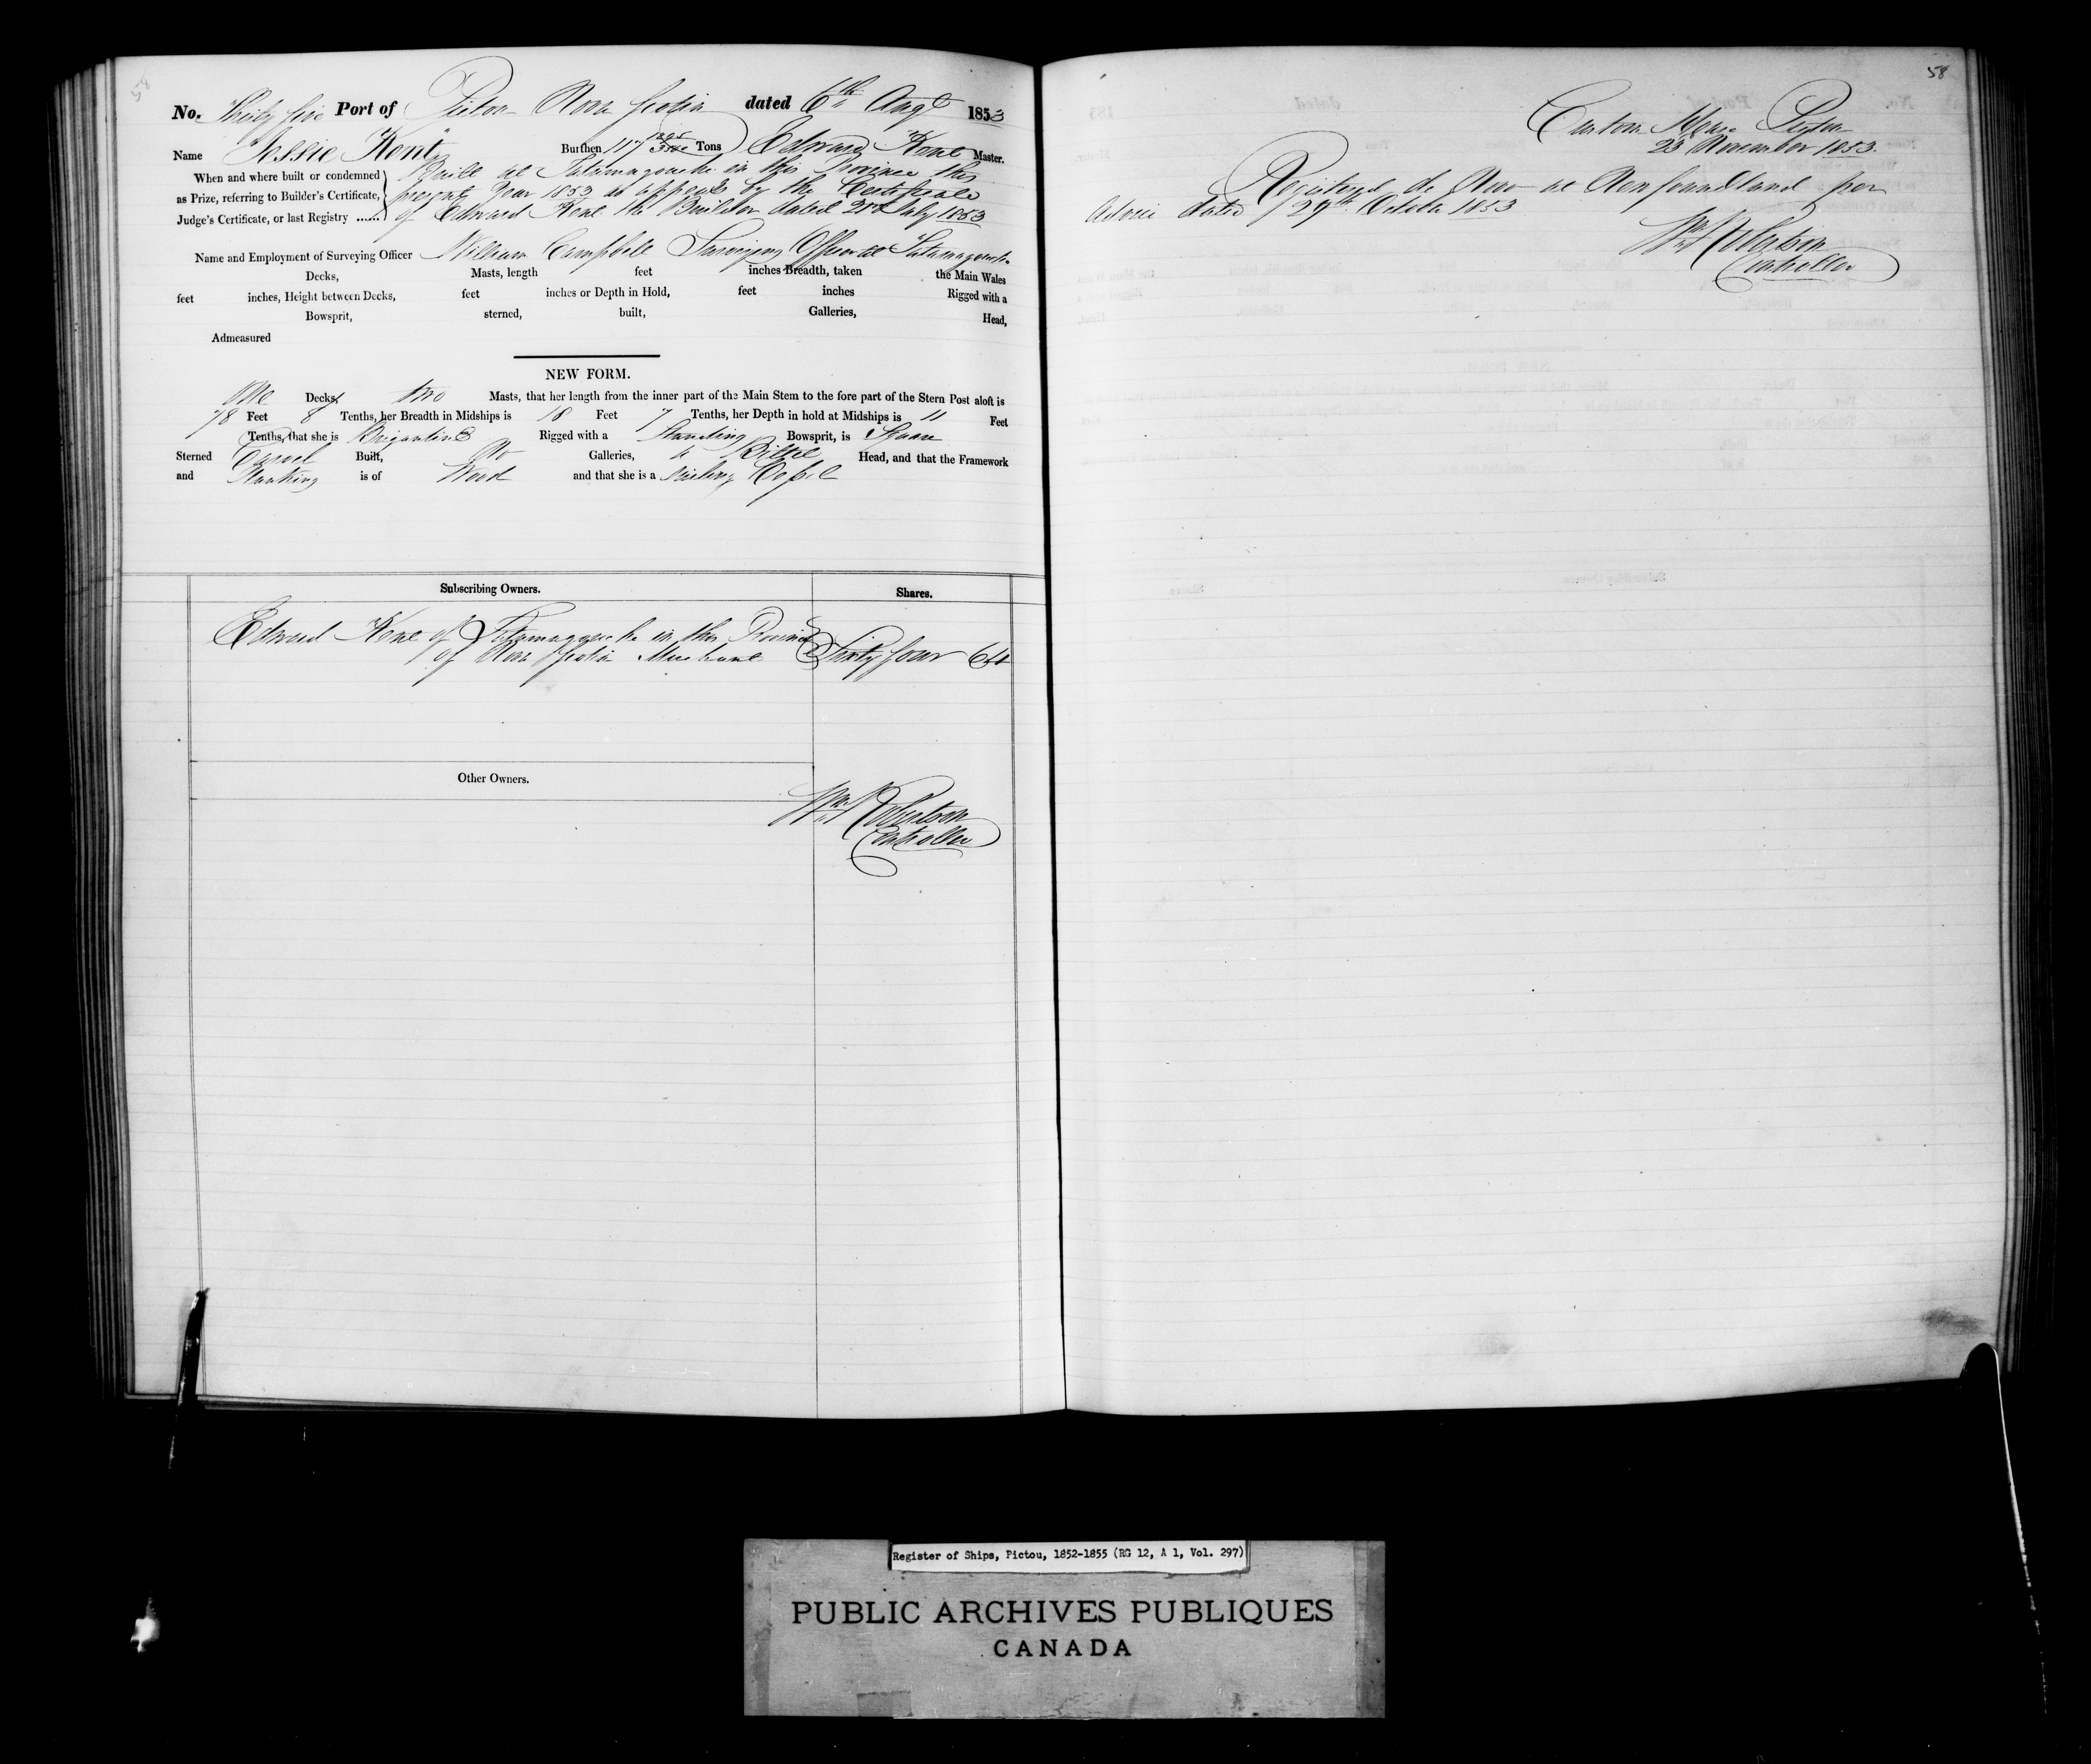 No. Thirty five Port of Pictou Nova Scotia dated 6th Augt 1853
Name "Jessie Kent" Burthen 117 Tons Edward Kent Master.
When and where built or condemned as Prize, referring to Builder's Certificate, Judge's Certificate, or last Registry ......
Built at Tatamagouche in this Province this
present Year 1853 as appears by the Certificate
of Edward Kent the Builder dated 21st July 1853
Name and Employment of Surveying Officer William Campbell Surveying Officer at Tatamagouche
Decks, Masts, length feet inches Breadth, taken the Main Wales
feet inches, Height between Decks, feet inches or Depth in Hold, feet inches Rigged with a
Bowsprit, sterned, built, Galleries, Head,
Admeasured
NEW FORM.
One Decks, two Masts, that her length from the inner part of the Main Stem to the fore part of the Stern Post aloft is
78 Feet 8 Tenths, her Breadth in Midships is 18 Feet 7 Tenths, her Depth in hold at Midships is 11 Feet
Tenths, that she is Brigantine Rigged with a Standing Bowsprit, is Square
Sterned Carvel Built, No Galleries, a Billet Head, and that the Framework
and Planking is of Wood and that she is a Sailing Vessel
Subscribing Owners. Shares.
Edward Kent of Tatamagouche in this Province
of Nova Scotia Merchant Sixty four 64
Other Owners.
Wm Robertson
Controller
58
Custom House Pictou
23 November 1853
Registered de Novo at Newfoundland per
Advice dated 29th October 1853
Wm Robertson
Controller
Register of Ships, Pictou, 1852-1855 (RG 12, A 1, Vol. 297)
PUBLIC ARCHIVES PUBLIQUES
CANADA